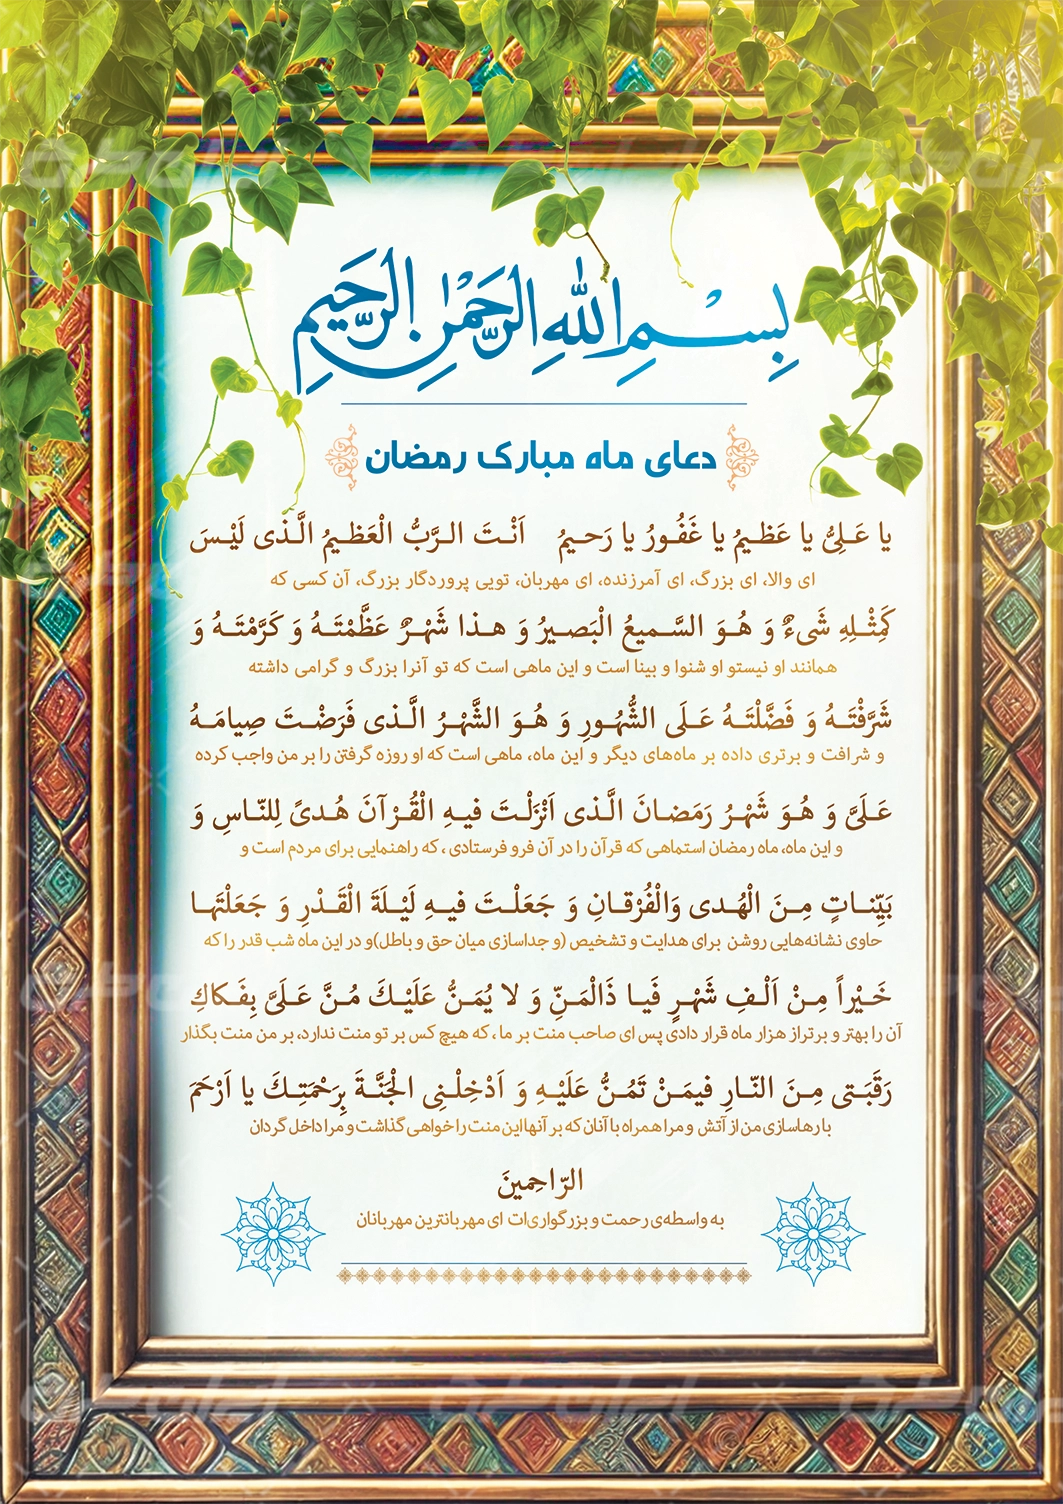 بِسْمِ اللهِ الرَّحْمٰنِ الرَّحِيمِ
دعای ماه مبارک رمضان
یا عَلِیُّ یا عَظیمُ یا غَفُورُ یا رَحیمُ اَنْتَ الرَّبُّ الْعَظیمُ الَّذی لَیْسَ
ای والا، ای بزرگ، ای آمرزنده، ای مهربان، تویی پروردگار بزرگ، آن کسی که
کَمِثْلِهِ شَیءٌ وَ هُوَ السَّمیعُ الْبَصیرُ وَ هذا شَهْرٌ عَظَّمْتَهُ وَ کَرَّمْتَهُ وَ
همانند او نیستو او شنوا و بینا است و این ماهی است که تو آنرا بزرگ و گرامی داشته
شَرَّفْتَهُ وَ فَضَّلْتَهُ عَلَی الشُّهُورِ وَ هُوَ الشَّهْرُ الَّذی فَرَضْتَ صِیامَهُ
و شرافت و برتری داده بر ماه‌های دیگر و این ماه، ماهی است که او روزه گرفتن را بر من واجب کرده
عَلَیَّ وَ هُوَ شَهْرُ رَمَضانَ الَّذی اَنْزَلْتَ فیهِ الْقُرْآنَ هُدیً لِلنّاسِ وَ
و این ماه، ماه رمضان استماهی که قرآن را در آن فرو فرستادی ، که راهنمایی برای مردم است و
بَیِّناتٍ مِنَ الْهُدی وَالْفُرْقانِ وَ جَعَلْتَ فیهِ لَیْلَةَ الْقَدْرِ وَ جَعَلْتَها
حاوی نشانه‌هایی روشن برای هدایت و تشخیص (و جداسازی میان حق و باطل)و در این ماه شب قدر را که
خَیْراً مِنْ اَلْفِ شَهْرٍ فَیا ذَالْمَنِّ وَ لا یُمَنُّ عَلَیْكَ مُنَّ عَلَیَّ بِفَکاكِ
آن را بهتر و برتراز هزار ماه قرار دادی پس ای صاحب منت بر ما ، که هیچ کس بر تو منت ندارد، بر من منت بگذار
رَقَبَتی مِنَ النّارِ فیمَنْ تَمُنُّ عَلَیْهِ وَ اَدْخِلْنِی الْجَنَّةَ بِرَحْمَتِكَ یا اَرْحَمَ
با رهاسازی من از آتش و مرا همراه با آنان که بر آنها این منت را خواهی گذاشت و مرا داخل گردان
الرّاحِمینَ
به واسطه‌ی رحمت و بزرگواری‌ات ای مهربانترین مهربانان